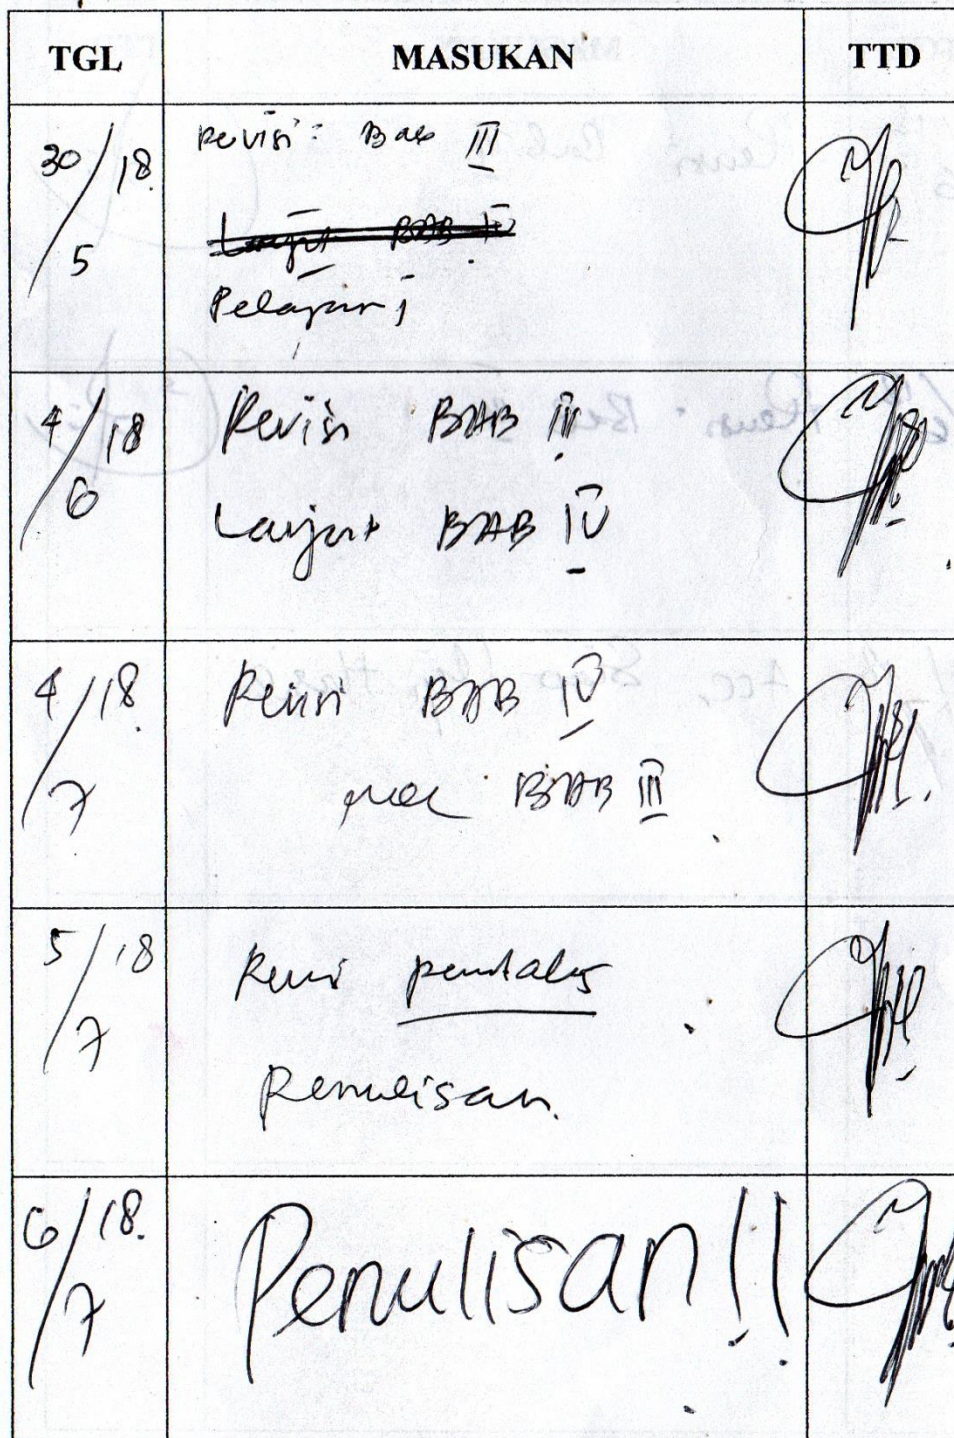 TGL MASUKAN TTD
30/5 18. Revisi: Bab III
Lanjut BAB IV
Pelajari
4/6 18 Revisi BAB III
Lanjut BAB IV
4/7 18. Revisi BAB IV
BAB III
5/7 18 Revisi
Penulisan.
6/7 18. Penulisan!!